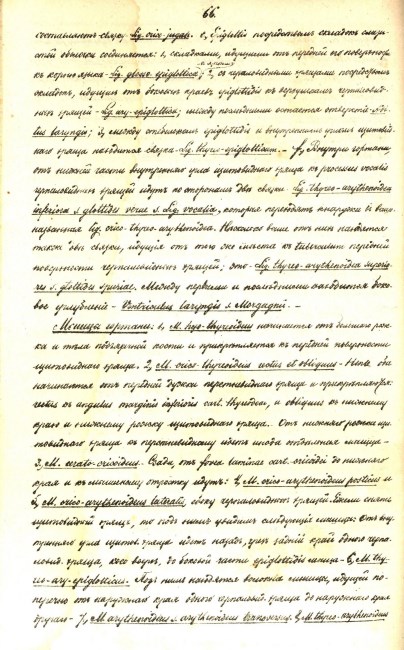 66.
составляетъ связку Lig. crico-jugale. e, Epiglottis посредствомъ складокъ слизи-
стой оболочки соединяется: 1, складками, идущими отъ передней его поверхности
къ корню языка - Lig. glosso epiglottica; 2, съ черпаловидными хрящами посредствомъ
складокъ, идущихъ отъ боковыхъ краевъ epiglottidis къ верхушкамъ черпаловид-
ныхъ хрящей - Lig. ary-epiglottica; между послѣдними остается отверстіе - Adi-
tus laryngis; 3, между стебелькомъ epiglottidis и внутреннимъ угломъ щитовид-
наго хряща находится связка - Lig. thyreo-epiglotticum. - f, Внутри гортани
отъ нижней части внутренняго угла щитовиднаго хряща къ processus vocalis
черпаловидныхъ хрящей идутъ по сторонамъ двѣ связки: Lig. thyreo-arythenoidea
inferiora s. glottidis verae s. Lig. vocalia, которыя переходятъ кнаружи въ выше-
названную lig. crico-thyreo-arythenoidea. Нѣсколько выше отъ нихъ находятся
также двѣ связки, идущія отъ того же мѣста къ передней
поверхности черпаловидныхъ хрящей; это - Lig. thyreo-arythenoidea superio-
ra s. glottidis spuriae. Между первыми и послѣдними находится боко-
вое углубленіе - Ventriculus laryngis s. Morgagni. -
Мышцы гортани: 1, M. hyo-thyreoideus начинается отъ большаго рож-
ка и тѣла подъязычной кости и прикрѣпляется къ передней поверхности
щитовиднаго хряща. 2, M. crico-thyreoideus rectus et obliquus -
начинается отъ передней дужки перстневиднаго хряща и прикрѣпляются:
rectus къ angulus marginis inferioris cart. thyreoideae, а obliquus къ нижнему
краю и нижнему рожку щитовиднаго хряща. Отъ нижняго рожка щи-
товиднаго хряща къ перстневидному идетъ иногда отдѣльная мышца -
3, M. cerato-cricoideus. Сзади, отъ fovea laminae cart. cricoideae до нижняго
края и къ мышечному отростку идутъ: 4, M. crico-arythenoideus posticus и
5, M. crico-arythenoideus lateralis, сбоку черпаловидныхъ хрящей. Если снять
щитовидный хрящъ, то подъ нимъ увидимъ слѣдующія мышцы: Отъ вну-
тренняго угла щитов. хряща идетъ назадъ, чрезъ задній край одного черпа-
ловид. хряща, косо вверхъ, до боковой части epiglottidis мышца - 6, M. thy-
reo-ary-epiglotticus. Подъ нимъ находятся волокна мышцы, идущей по-
перечно отъ наружнаго края одного черпаловид. хряща до наружнаго края
другаго - 7, M. arythenoideus s. arythenoideus transversus. 8, M. thyreo-arythenoideus